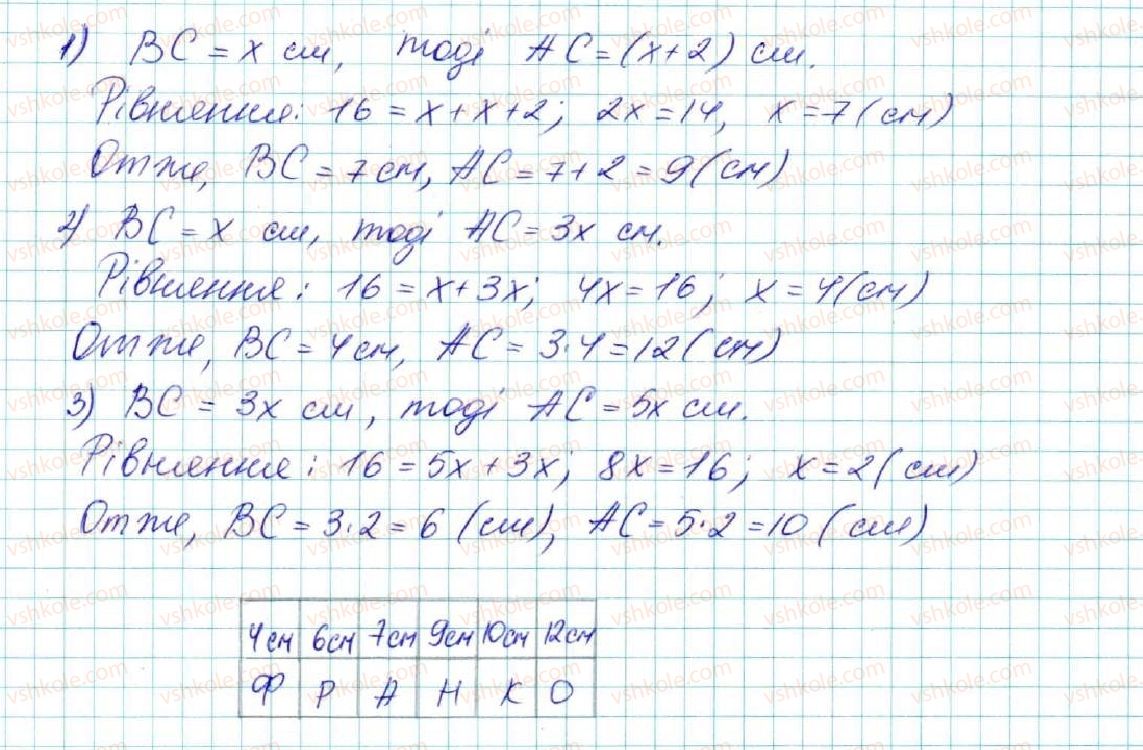 1) BC = x см, тоді AC = (x+2) см.
Рівняння: 16 = x + x + 2; 2x = 14, x = 7 (см)
Отже, BC = 7 см, AC = 7 + 2 = 9 (см)
2) BC = x см, тоді AC = 3x см.
Рівняння: 16 = x + 3x; 4x = 16; x = 4 (см)
Отже, BC = 4 см, AC = 3·4 = 12 (см)
3) BC = 3x см, тоді AC = 5x см.
Рівняння: 16 = 5x + 3x; 8x = 16; x = 2 (см)
Отже, BC = 3·2 = 6 (см), AC = 5·2 = 10 (см)
4см 6см 7см 9см 10см 12см
Ф Р А Н К О
vshkole.com